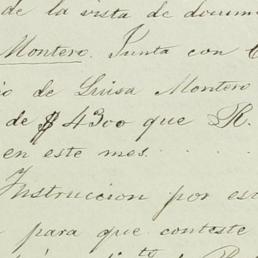 de la vista de docum
Montero. Junta con
de Luisa Montero
de $ 4300 que R.
en este mes.
Instruccion por es
para que conteste